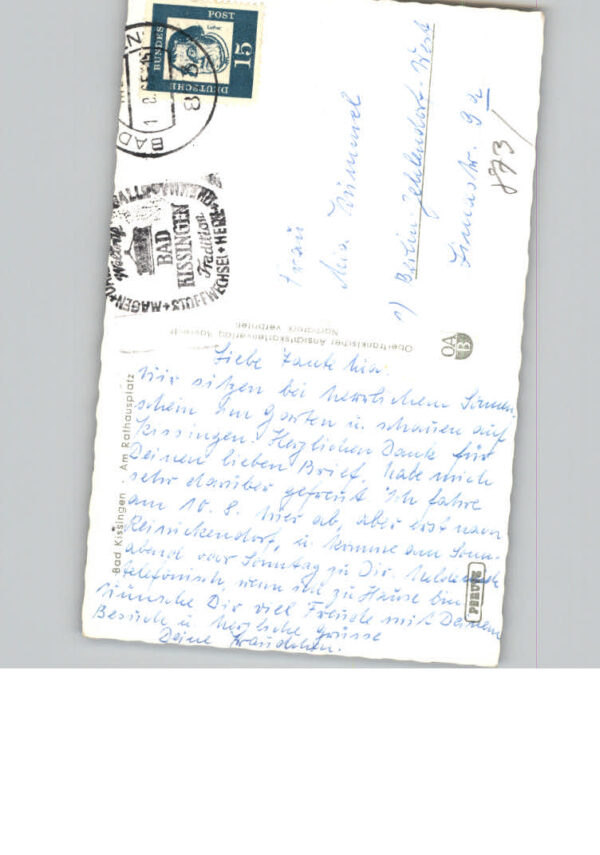 Liebe Tante Mia.
Wir sitzen bei herrlichem Sonnen-
schein im Garten u. schauen auf
Kissingen. Herzlichen Dank für
Deinen lieben Brief, habe mich
sehr darüber gefreut. Ich fahre
am 10. 8. hier ab, aber erst nach
Reinickendorf, u. komme am Sonn-
abend oder Sonntag zu Dir. Melde mich
telefonisch wenn ich zu Hause bin
wünsche Dir viel Freude mit Deinem
Besuch u herzliche Grüsse
Deine Traudchen.
Frau
Mia Kümmel
1) Berlin-Zehlendorf-West
9a
873/
Bad Kissingen Am Rathausplatz
Oberfränkischer Ansichtskartenverlag
Nachdruck verboten
OA
B
PERUTZ
DEUTSCHE BUNDESPOST
15
Luther
BAD
8
BAD
KISSINGEN
Tradition
MAGEN
STOFFWECHSEL + HERZ